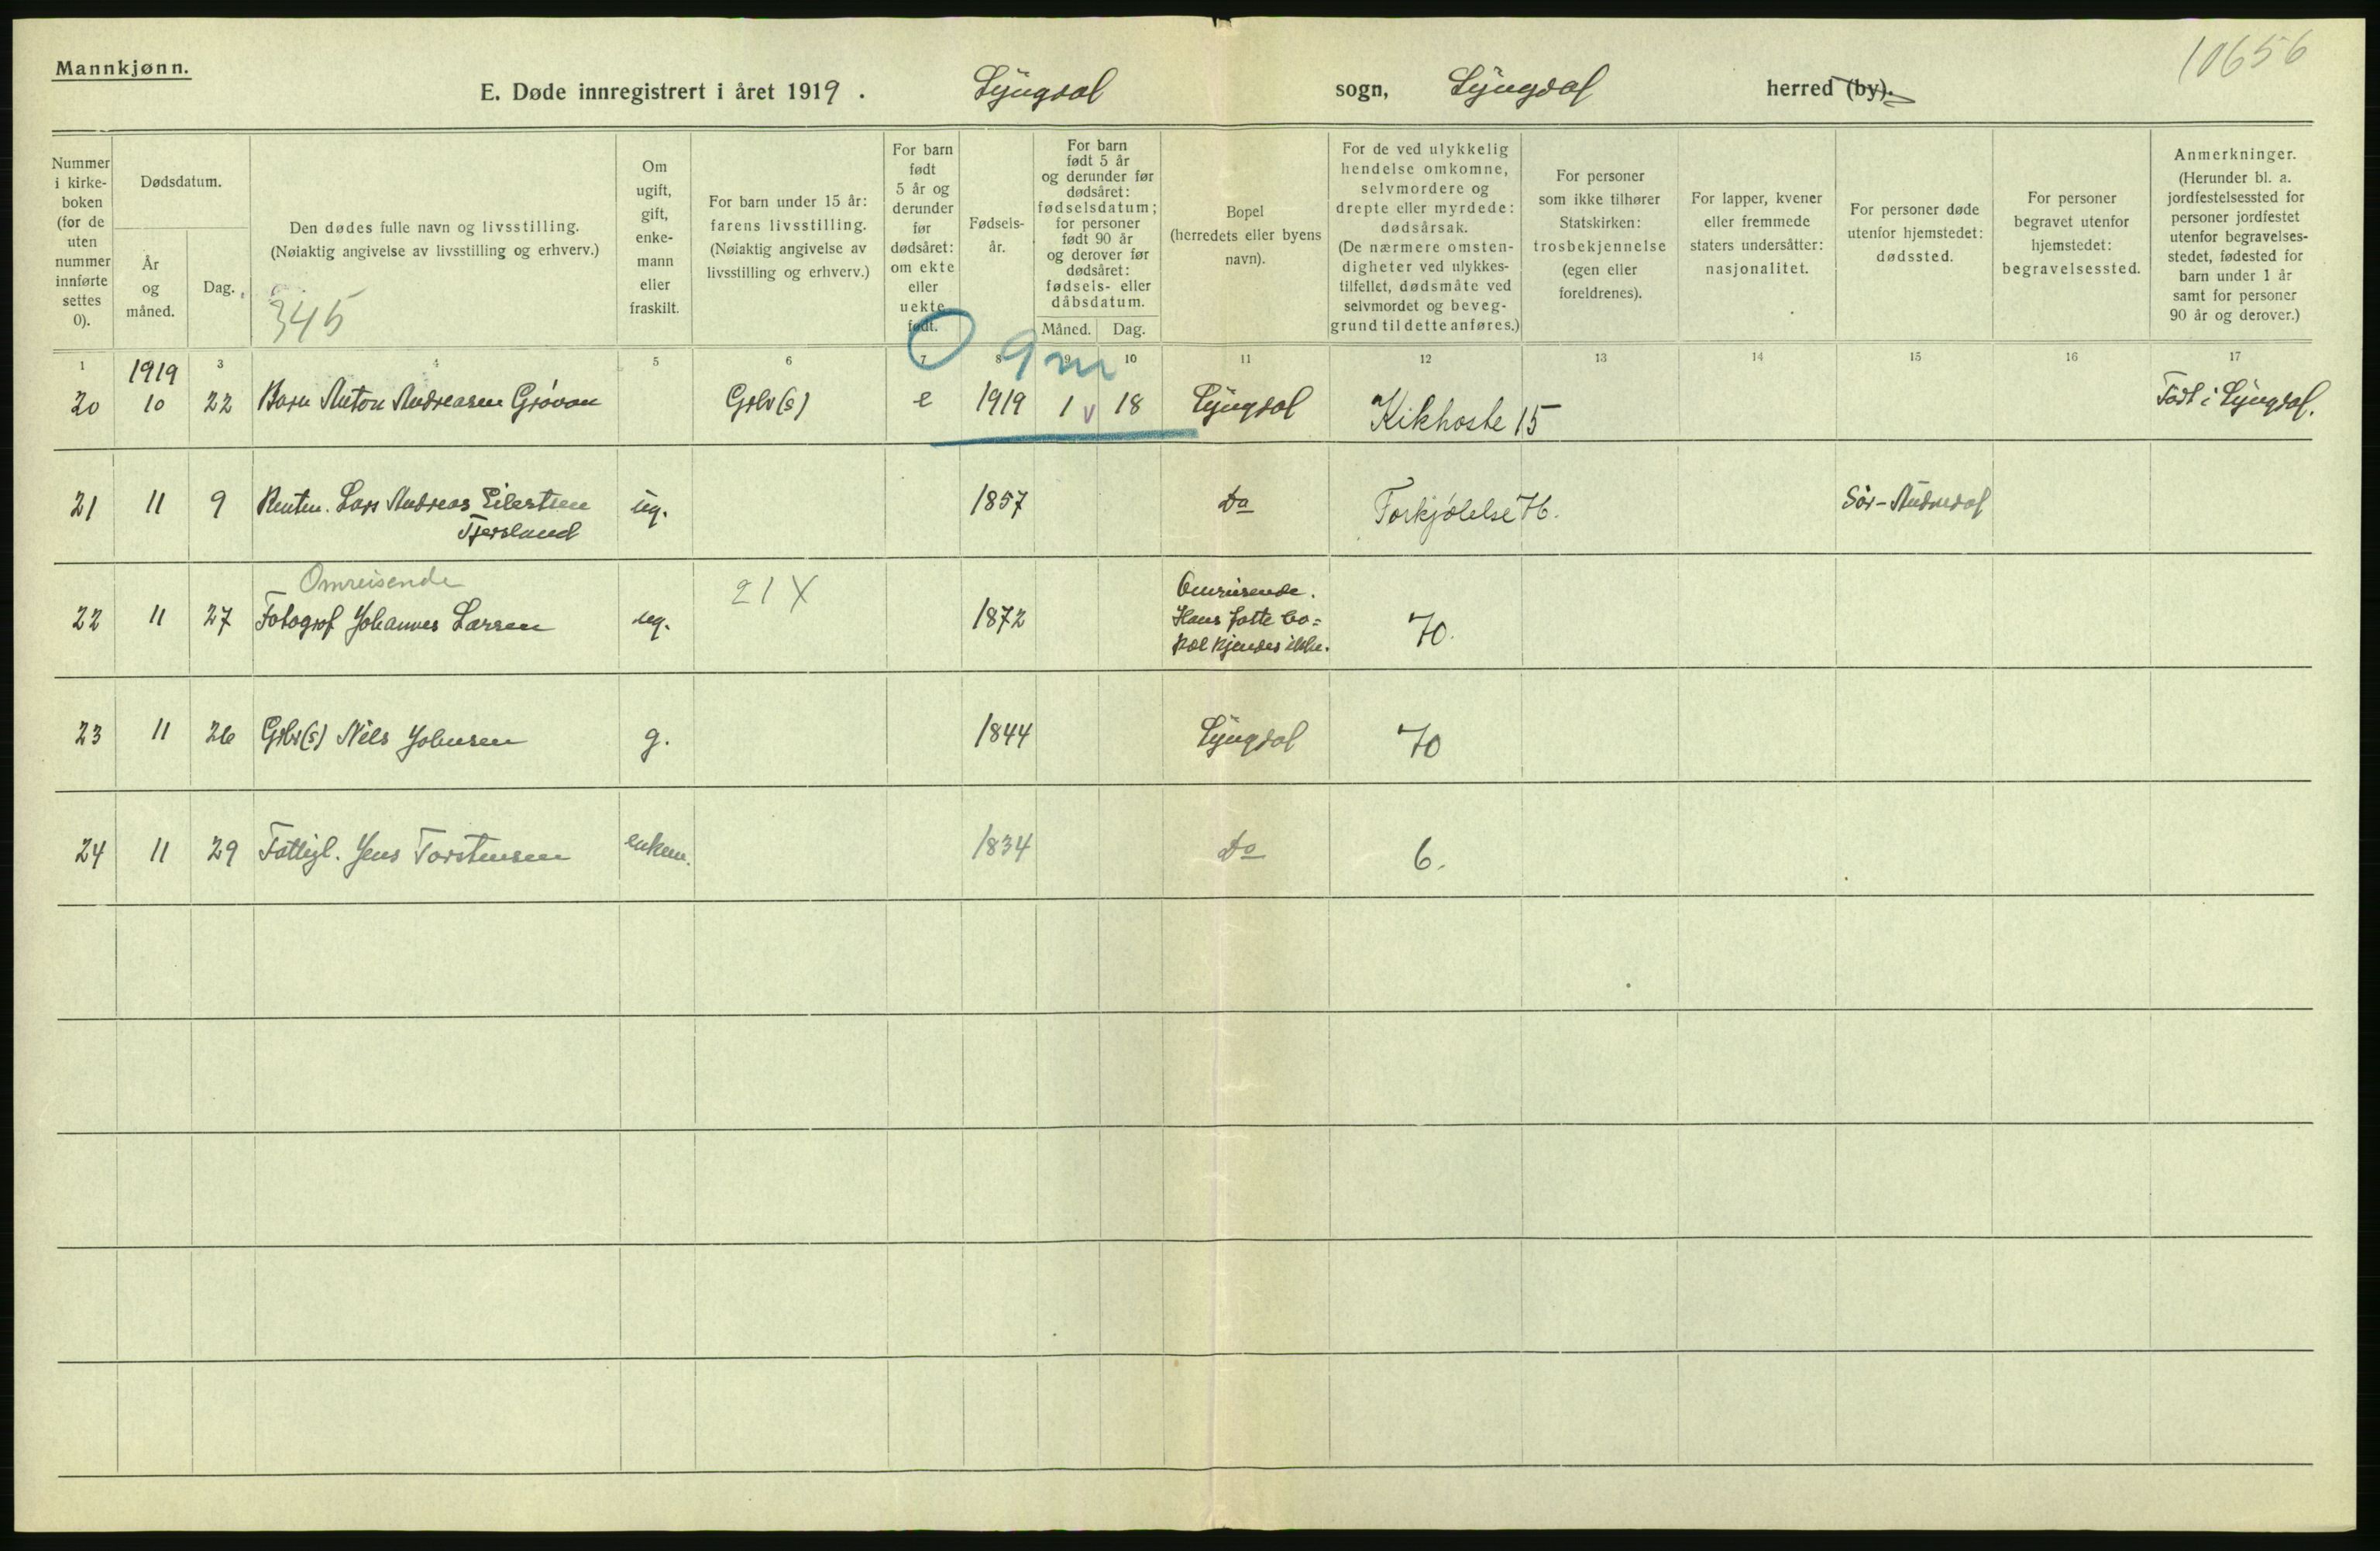 Mannkjønn.
10656
E. Døde innregistrert i året 1919. Lyngdal sogn, Lyngdal herred (by).
Nummer i kirke- boken (for de uten nummer innførte settes 0).
Dødsdatum.
År og måned.
Dag.
Den dødes fulle navn og livsstilling.
(Nøiaktig angivelse av livsstilling og erhverv.)
345
Om ugift, gift, enke- mann eller fraskilt.
For barn under 15 år: farens livsstilling.
(Nøiaktig angivelse av livsstilling og erhverv.)
For barn født 5 år og derunder før dødsåret: om ekte eller uekte født.
Fødsels- år.
For barn født 5 år og derunder før dødsåret: fødselsdatum; for personer født 90 år og derover før dødsåret: fødsels- eller dåbsdatum.
Måned. Dag.
Bopel (herredets eller byens navn).
For de ved ulykkelig hendelse omkomne, selvmordere og drepte eller myrdede: dødsårsak.
(De nærmere omsten- digheter ved ulykkes- tilfellet, dødsmåte ved selvmordet og beveg- grund til dette anføres.)
For personer som ikke tilhører Statskirken: trosbekjennelse (egen eller foreldrenes).
For lapper, kvener eller fremmede staters undersåtter: nasjonalitet.
For personer døde utenfor hjemstedet: dødssted.
For personer begravet utenfor hjemstedet: begravelsessted.
Anmerkninger.
(Herunder bl. a. jordfestelsessted for personer jordfestet utenfor begravelses- stedet, fødested for barn under 1 år samt for personer 90 år og derover.)
1 3 4 5 6 7 8 9 10 11 12 13 14 15 16 17
1919
0 9 m
20 10 22 Barn Anton Andreasen Gjövan Grbr(s) e 1919 1 v 18 Lyngdal Kikhoste 15 Födt i Lyngdal.
21 11 9 Renten. Lars Andreas Eilertsen ug. 1857 Do Forkjölelse 76. Sör-Audnedal
Tjersland
Omreisende
22 11 27 Fotograf Johannes Larsen ug. 21 X 1872 Omreisende. Hans faste bo= pæl kjendes ikke. 70.
23 11 26 Grbr(s) Nils Johnsen g. 1844 Lyngdal 70
24 11 29 Fattigl. Jens Torstensen enkem. 1834 Do 6.